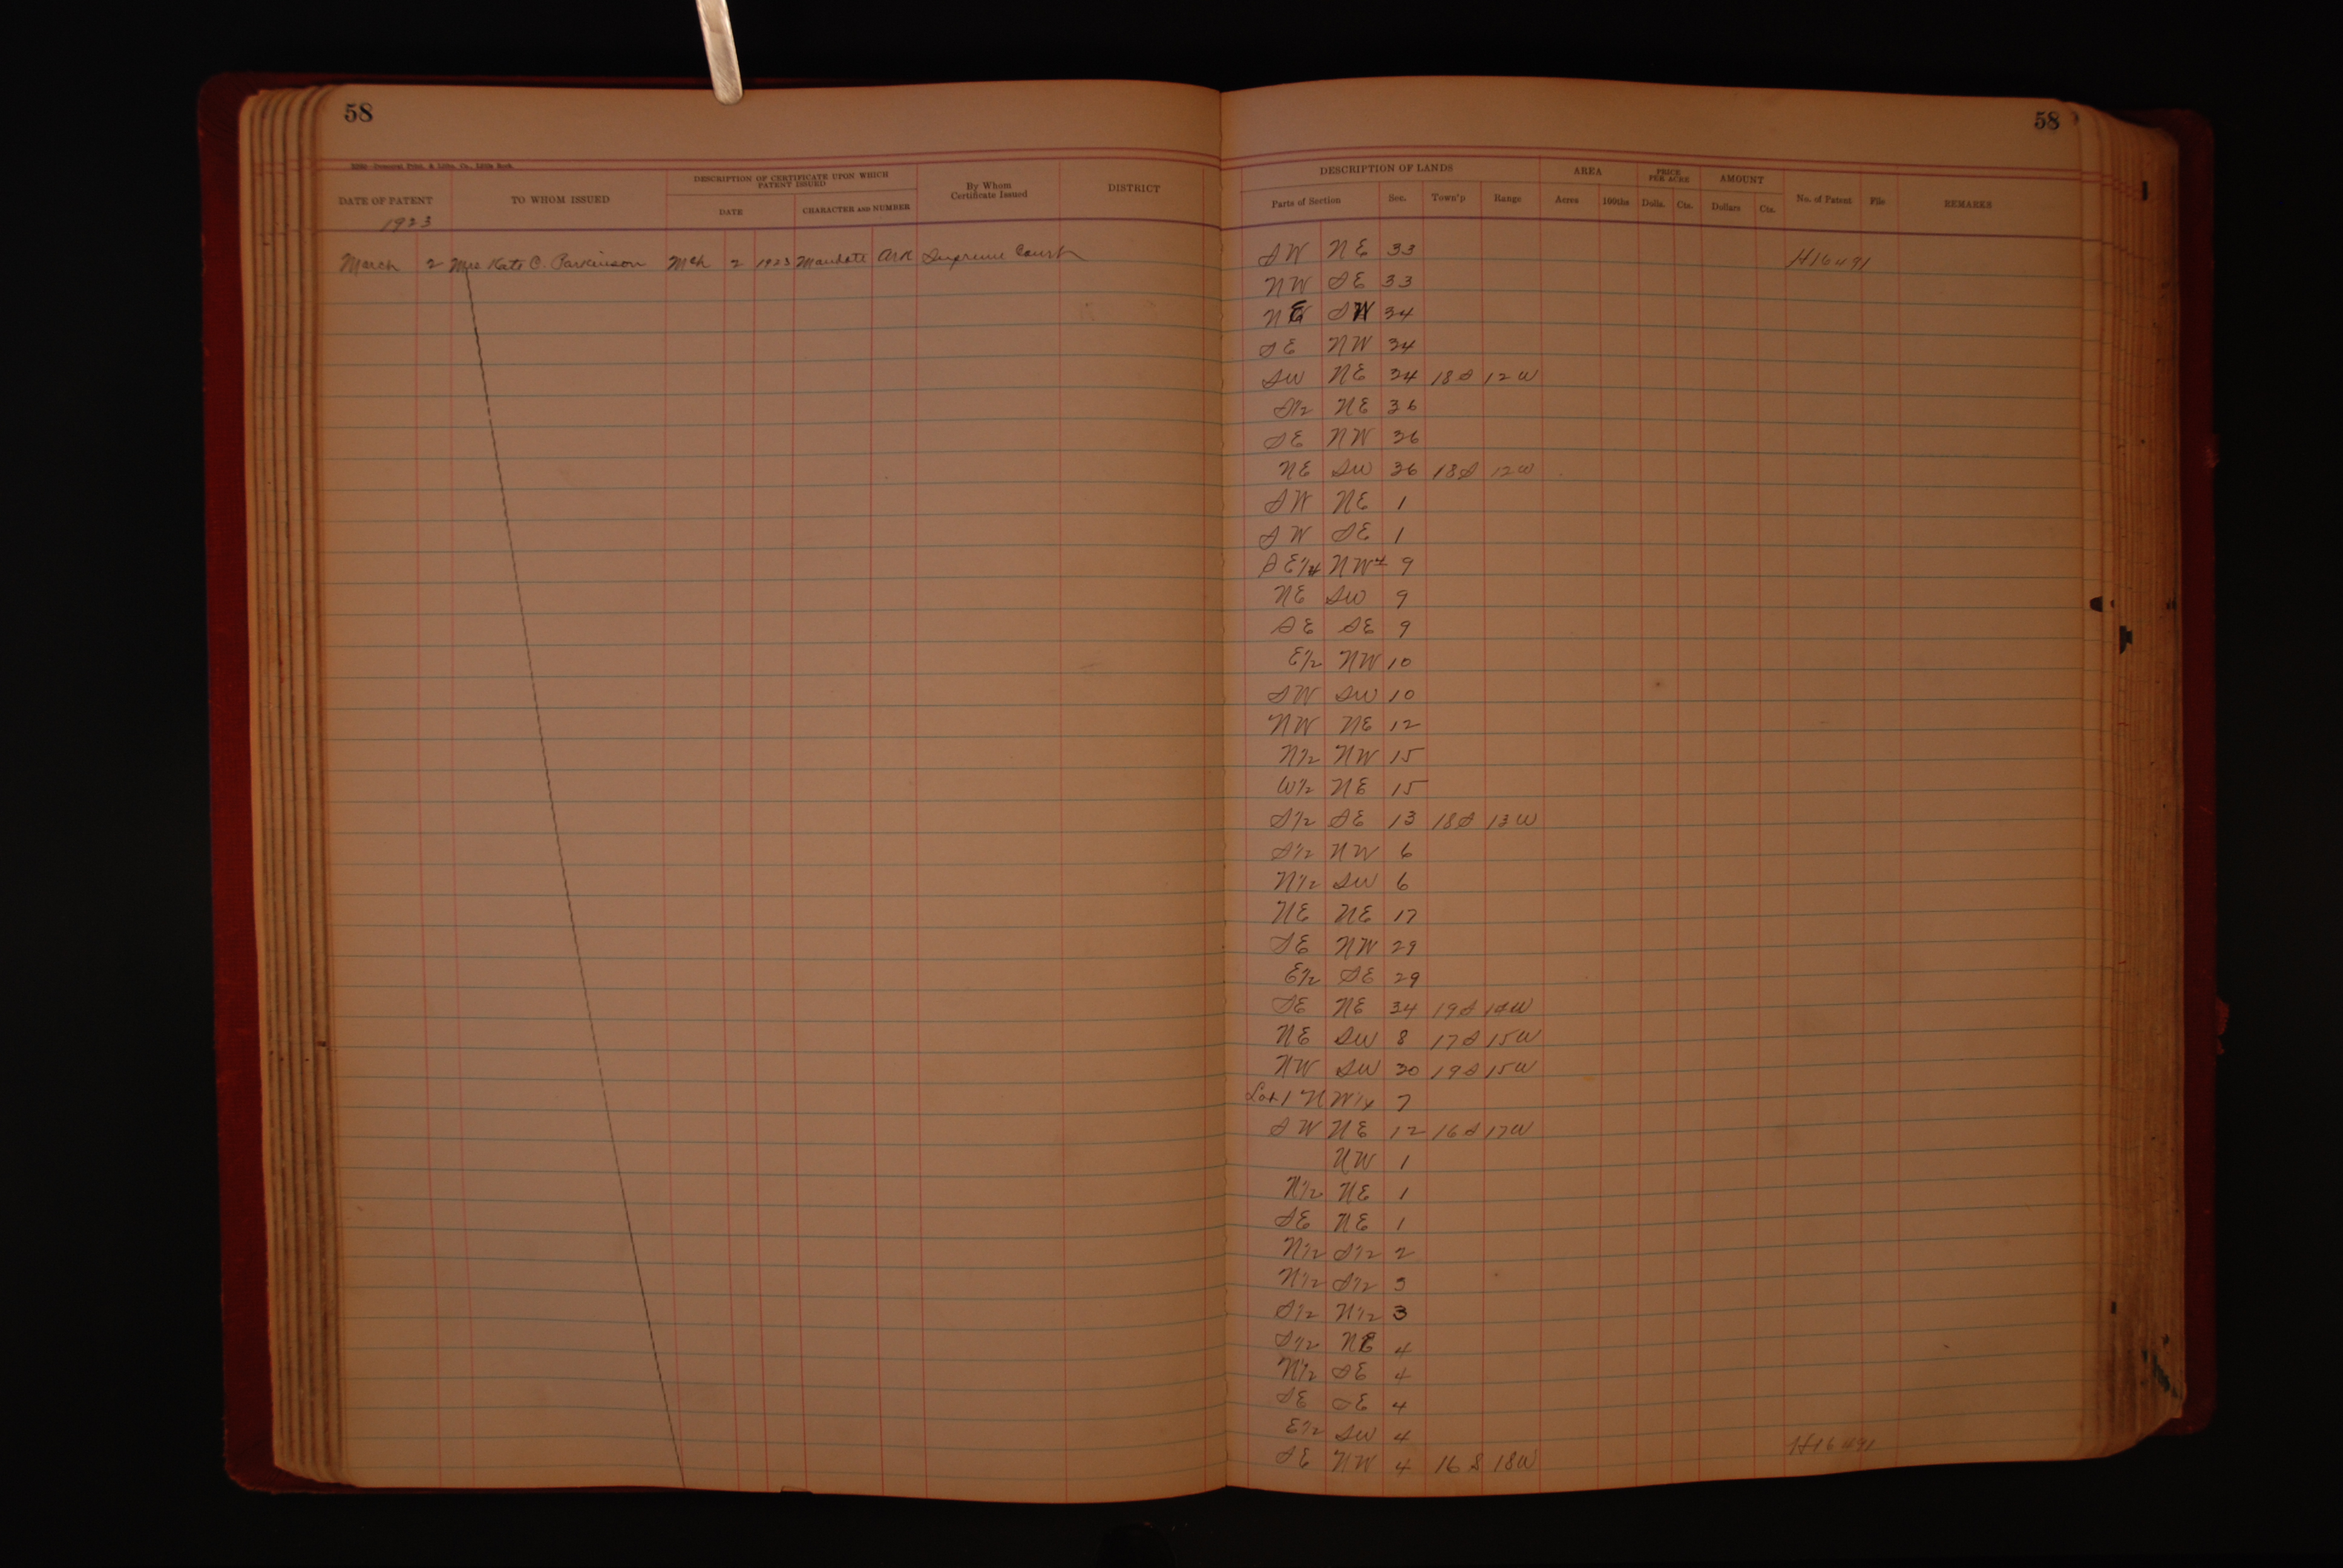 58
DATE OF PATENT TO WHOM ISSUED DESCRIPTION OF CERTIFICATE UPON WHICH PATENT ISSUED DATE CHARACTER AND NUMBER By Whom Certificate Issued DISTRICT
1923
March 2 Mrs Kate C. Parkinson Mch 2 1923 Mandate Ark Supreme Court
58
DESCRIPTION OF LANDS AREA PRICE PER ACRE AMOUNT
Parts of Section Sec. Town'p Range Acres 100ths Dolls. Cts. Dollars Cts. No. of Patent File REMARKS
SW NE 33 H16491
NW SE 33
NE SW 34
SE NW 34
SW NE 34 18S 12W
S1/2 NE 36
SE NW 36
NE SW 36 18S 12W
SW NE 1
SW SE 1
SE1/4 NW4 9
NE SW 9
SE SE 9
E1/2 NW 10
SW SW 10
NW NE 12
N1/2 NW 15
W1/2 NE 15
S1/2 SE 13 18S 13W
S1/2 NW 6
N1/2 SW 6
NE NE 17
SE NW 29
E1/2 SE 29
SE NE 34 19S
NE SW 8 17S 15W
NW SW 30 19S 15W
Lot 1 NW1/4 7
SW NE 12 16S 17W
NW 1
N1/2 NE 1
SE NE 1
N1/2 S1/2 2
N1/2 S1/2 3
S1/2 N1/2 3
S1/2 NE 4
N1/2 SE 4
SE SE 4
E1/2 SW 4
SE NW 4 16S 18W H16491